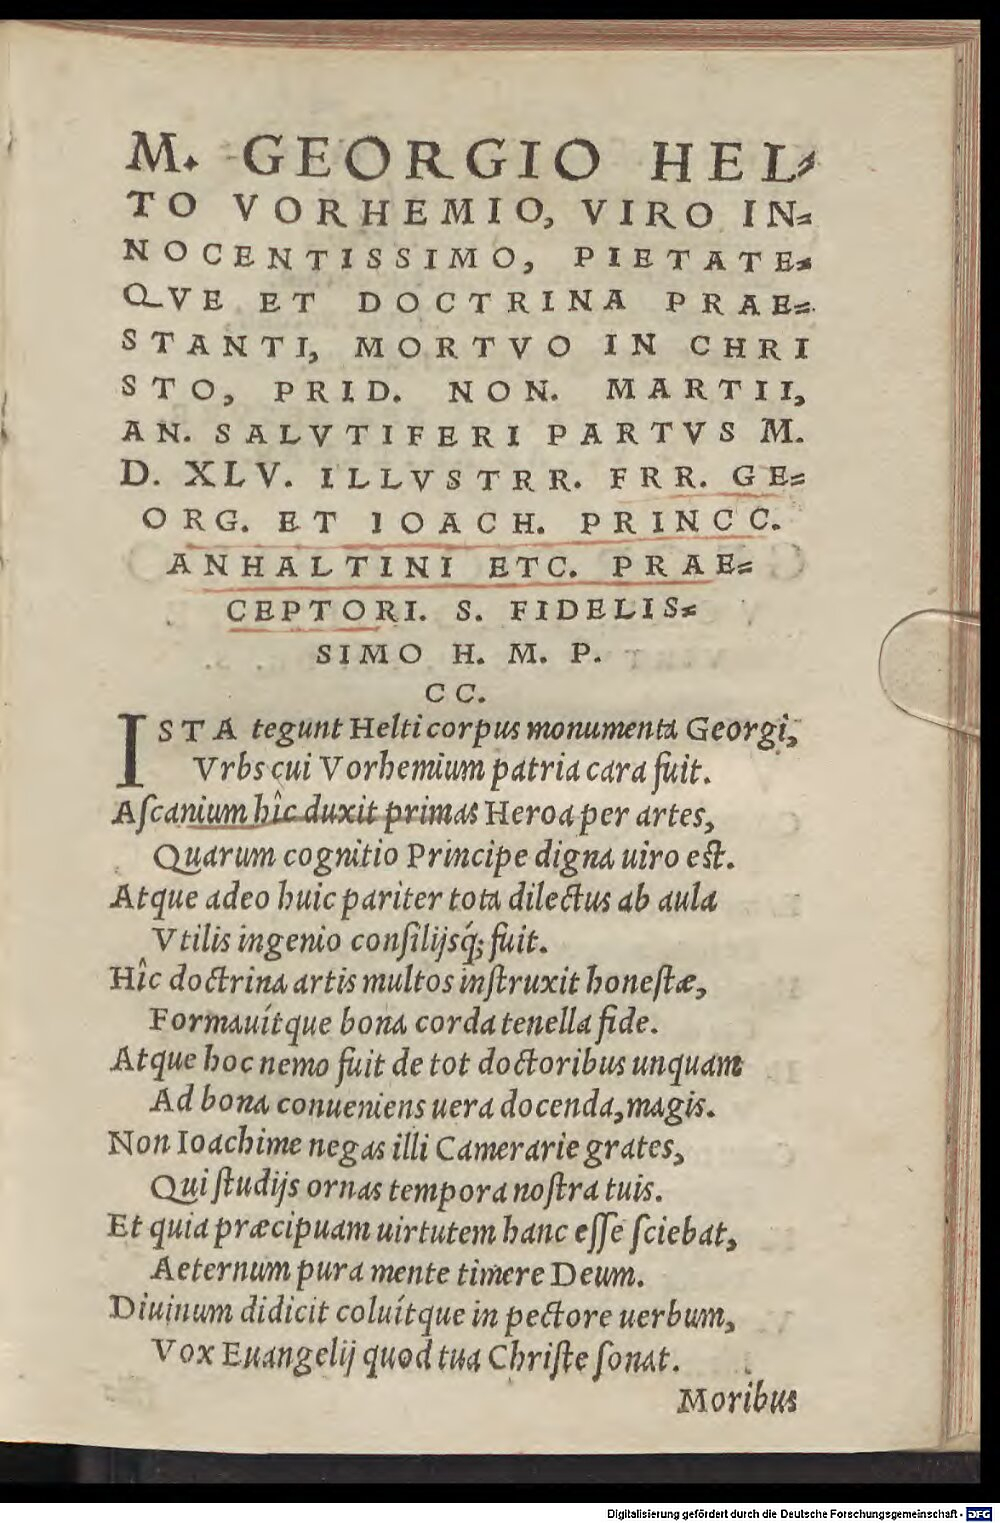 M. GEORGIO HEL⸗
TO VORHEMIO, VIRO IN⸗
NOCENTISSIMO, PIETATE⸗
QVE ET DOCTRINA PRAE⸗
STANTI, MORTVO IN CHRI
STO, PRID. NON. MARTII,
AN. SALVTIFERI PARTVS M.
D. XLV. ILLVSTRR. FRR. GE⸗
ORG. ET IOACH. PRINCC.
ANHALTINI ETC. PRAE⸗
CEPTORI. S. FIDELIS⸗
SIMO H. M. P.
CC.
ISTA tegunt Helti corpus monumenta Georgi,
Vrbs cui Vorhemium patria cara fuit.
Aſcanium hîc duxit primas Heroa per artes,
Quarum cognitio Principe digna uiro est.
Atque adeo huic pariter tota dilectus ab aula
Vtilis ingenio conſilijsq́; fuit.
Hîc doctrina artis multos inſtruxit honeſtæ,
Formauítque bona corda tenella fide.
Atque hoc nemo fuit de tot doctoribus unquam
Ad bona conueniens uera docenda, magis.
Non Ioachime negas illi Camerarie grates,
Qui ſtudijs ornas tempora noſtra tuis.
Et quia præcipuam uirtutem hanc eſſe ſciebat,
Aeternum pura mente timere Deum.
Diuinum didicit coluítque in pectore uerbum,
Vox Euangelij quod tua Chriſte ſonat.
Moribus
Digitalisierung gefördert durch die Deutsche Forschungsgemeinschaft - DFG